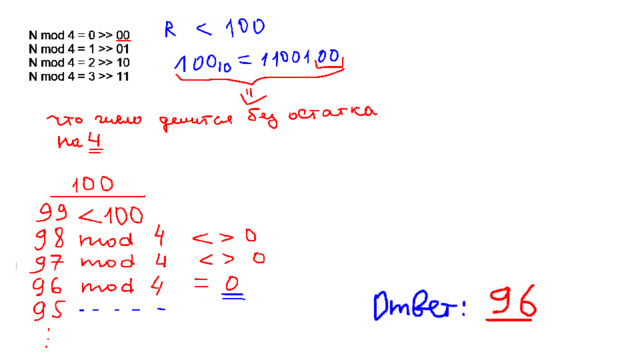 N mod 4 = 0 >> 00
N mod 4 = 1 >> 01
N mod 4 = 2 >> 10
N mod 4 = 3 >> 11
R < 100
100₁₀ = 1100100
что число делится без остатка
на 4
100
99 < 100
98 mod 4 <> 0
97 mod 4 <> 0
96 mod 4 = 0
95 - - - - -
Ответ: 96